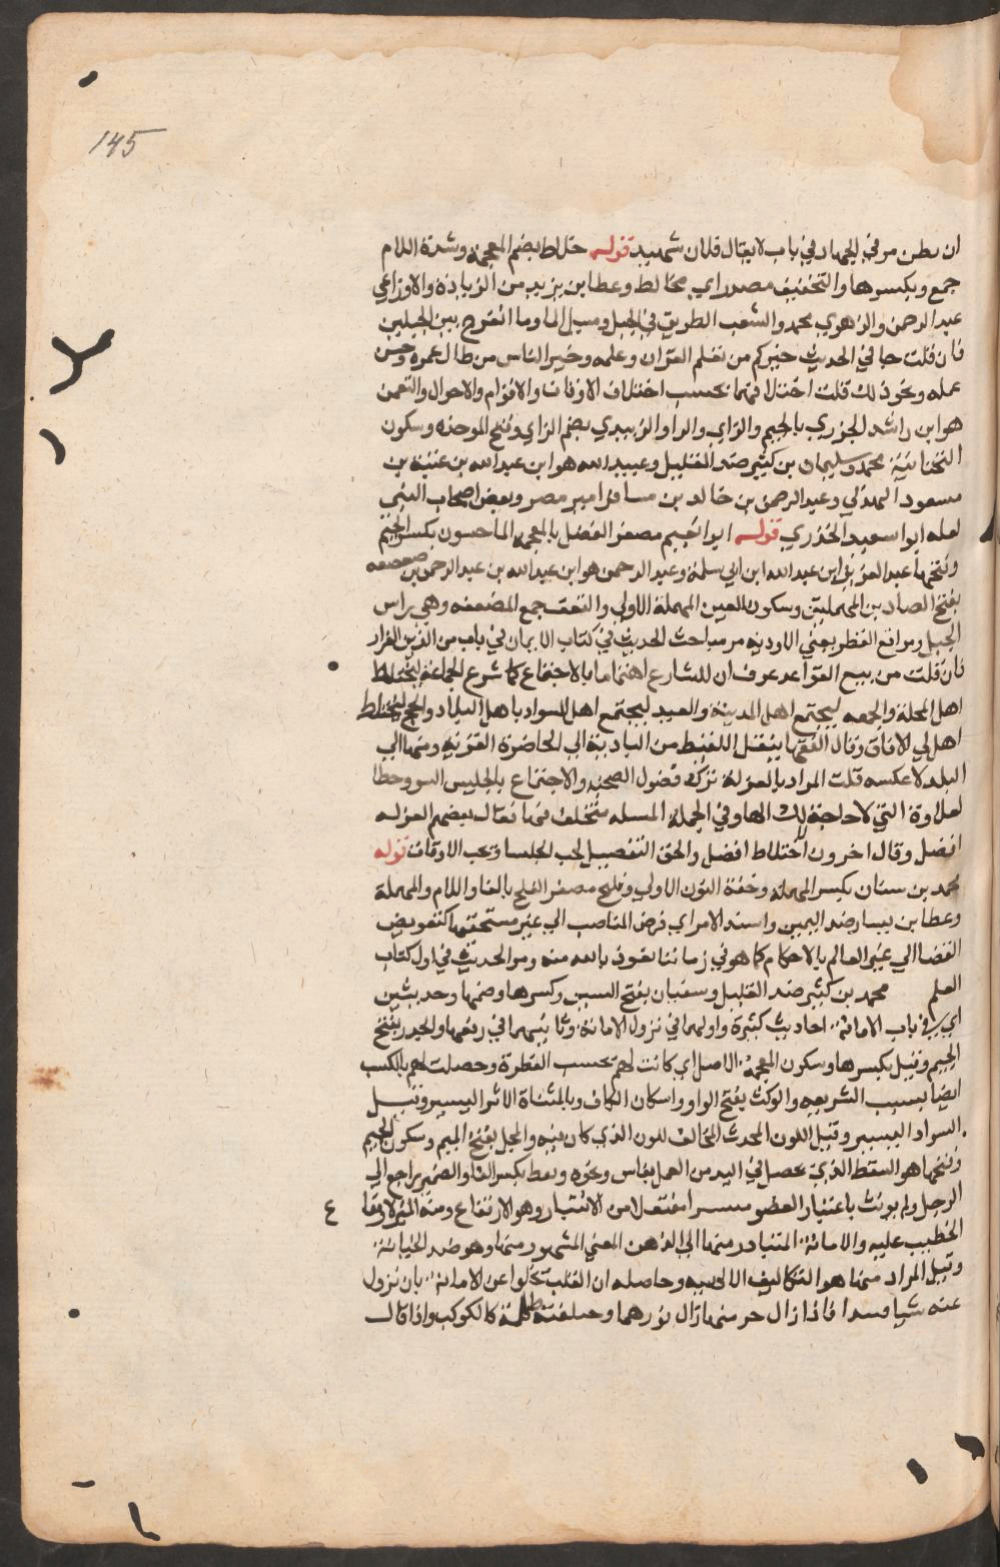 145
ان بطن مر في الجهاد في باب لا يقال فلان شهيد قوله خلاط بضم المعجمة وشدة اللام
جمع وبكسرها والتخفيف مصدر اي مخالط وعطا بن يزيد من الزيادة والاوزاعي
عبد الرحمن والزهري محمد والشعب الطريق في الجبل ومسيل الما وما انفرج بين الجبلين
فان قلت جا في الحديث خيركم من تعلم القران وعلمه وخير الناس من طال عمره وحسن
عمله ونحو ذلك قلت اختلافهما بحسب اختلاف الاوقات والاقوام والاحوال والنعمن
هو ابن راشد الجزري بالجيم والزاي والراو الزبيدي بضم الزاي وفتح الموحدة وسكون
التحتانية محمد وسليمان بن كثير ضد القليل وعبيد الله هو ابن عبد الله بن عتبة بن
مسعود الهذلي وعبد الرحمن بن خالد بن مسافر امير مصر وبعض اصحاب النبي
لعله ابو اسعيد الخدري قوله ابو انعيم مصغر الفضل بالمعجمة الماجسون بكسر الجيم
وفتحها عبد العزيز ابن عبد الله ابن ابي سلمة وعبد الرحمن هو ابن عبد الله بن عبد الرحمن بن صعصعه
بفتح الصادين المهملتين وسكون العين المهملة الاولى والشعف جمع الشعفه وهي راس
الجبل ومواقع القطر يعني الاودية مر مباحث الحديث في كتاب الايمان في باب من الدين الفرار
فان قلت من تتبع القواعد عرف ان للشارع اهتماما بالاجتماع كما شرع الجماعة ليختلط
اهل المحلة والجمعه ليجتمع اهل المدينة والعيد ليجتمع اهل السواد باهل البلد والحج ليختلط
اهل الافاق وقال الفقها ينقل اللقيط من البادية الى الحاضرة القرية ومنها الى
البلد لا عكسه قلت المراد بالعزلة ترك فضول الصحبة والاجتماع بالجليس السو
التي لا حاجة لك الها وفي الجملة المسله مختلف فيها فقال بعضهم العزله
افضل وقال اخرون الاختلاط افضل والحق التفصيل بحسب الجلسا وبحسب الاوقات قوله
محمد بن سنان بكسر المهملة وخفة النون الاولى وفليح مصغر الفلح بالفا واللام والمهملة
وعطا بن يسار ضد اليمين واسند الامر اي فوض المناصب الى غير مستحقها كتفويض
القضا الى غير العالم بالاحكام كما هو في زماننا نعوذ بالله منه ومر الحديث في اول كتاب
العلم محمد بن كثير ضد القليل وسفيان بفتح السين وكسرها وضمها وحديثين
اي في باب الامانة احاديث كثيرة واولهما في نزول الامانة وثانيهما في رفعها والجذر بفتح
الجيم وقيل بكسرها وسكون المعجمة الاصل اي كانت لهم بحسب الفطرة وحصلت لهم بالكسب
ايضا بسبب الشريعه والوكت بفتح الواو واسكان الكاف وبالمثناة الاثر اليسير وقيل
السواد اليسير وقيل اللون المحدث المخالف للون الذي كان قبله والمجل بفتح الميم وسكون الجيم
وفتحها هو النفط الذي يحصل في اليد من العمل بفاس ونحوه ونفط بكسر الفا والضمير راجع الى
الرجل ولم يونث باعتبار العضو منتبرا مفتعلا من الانتبار وهو الارتفاع ومنه المنبر لارتقا
الخطيب عليه والامانة المتبادر منها الى الذهن المعنى المشهور منها وهو ضد الخيانة
وقيل المراد منها هو التكاليف الالهية وحاصله ان القلب يخلوا عن الامانة بان تزول
عنه شيا فشيا فاذا زال جز منها زال نورها وخلفته ظلمة كالوكت واذا زال
ع